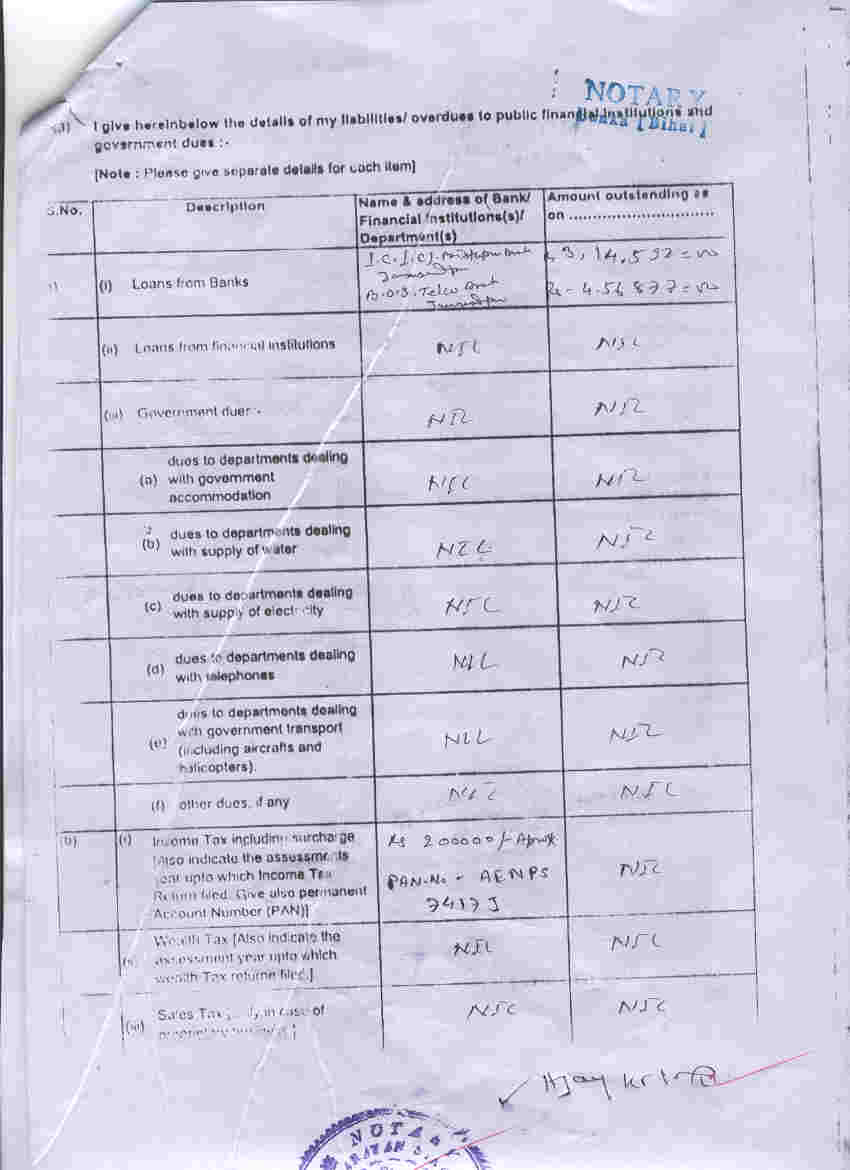 NOTARY
I give hereinbelow the details of my liabilities/ overdues to public financial institutions and
government dues :-
[Note : Please give separate details for each item]
S.No.
Description
Name & address of Bank/
Financial Institutions(s)/
Department(s)
Amount outstanding as
on ..............................
(i) Loans from Banks
I.C.I.C.I.
B.O.B. Telco
3,14,592=00
Rs- 4.56 877=00
(ii) Loans from financial institutions NIL NIL
(iii) Government dues :- NIL NIL
dues to departments dealing
(a) with government NIL NIL
accommodation
(b) dues to departments dealing
with supply of water NIL NIL
(c) dues to departments dealing
with supply of electricity NIL NIL
(d) dues to departments dealing
with telephones NIL NIL
dues to departments dealing
with government transport
(e) (including aircrafts and NIL NIL
helicopters).
(f) other dues, if any NIL NIL
(b) (i) Income Tax including surcharge Rs 200000/-
[Also indicate the assessments
year upto which Income Tax PAN.No - AENPS NIL
Return filed. Give also permanent 7417J
Account Number (PAN)]
Wealth Tax [Also indicate the
assessment year upto which NIL NIL
wealth Tax returne filed.]
(iii) Sales Tax in case of NIL NIL
Ajay Kr
NOTA